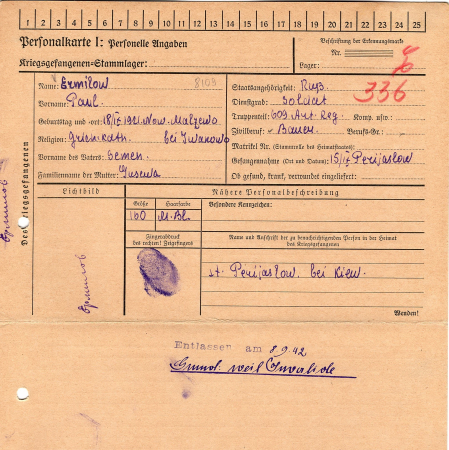 1 2 3 4 5 6 7 8 9 10 11 12 13 14 15 16 17 18 19 20 21 22 23 24 25
Personalkarte I: Personelle Angaben
Kriegsgefangenen-Stammlager:
Beschriftung der Erkennungsmarke
Nr.
Lager:
336
Des Kriegsgefangenen
Name: Ermilow 8103
Vorname: Paul
Geburtstag und -ort: 18/IX 1921 Now. Malzewo
Religion: Griech. kath. bei Iwanowo
Vorname des Vaters: Semen
Familienname der Mutter: Gusewa
Staatsangehörigkeit: Ruß.
Dienstgrad: Soldat
Truppenteil: 609 Art. Reg. Komp. usw.:
Zivilberuf: Bauer Berufs-Gr.:
Matrikel Nr. (Stammrolle des Heimatstaates):
Gefangennahme (Ort und Datum): 15/IX Perijaslow
Ob gesund, krank, verwundet eingeliefert:
Lichtbild
Nähere Personalbeschreibung
Größe Haarfarbe
160 M. Bl.
Besondere Kennzeichen:
Fingerabdruck
des rechten! Zeigefingers
Name und Anschrift der zu benachrichtigenden Person in der Heimat
des Kriegsgefangenen
st. Perijaslow bei Kiew.
Wenden!
Ермилов
Ермилов
Entlassen am 8.9.42
Grund: weil Invalide